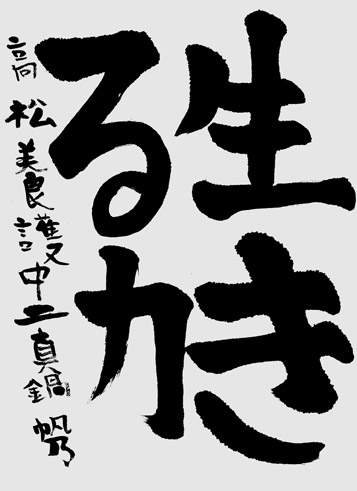 生き
る力
高松美良護中二真鍋帆乃